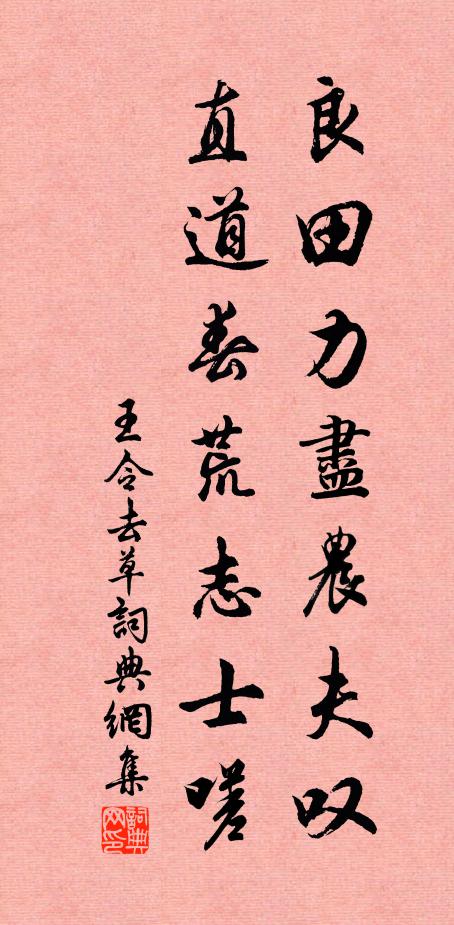 良田力盡農夫叹
直道春荒志士嗟
王令去草詞典網集
詞典网印